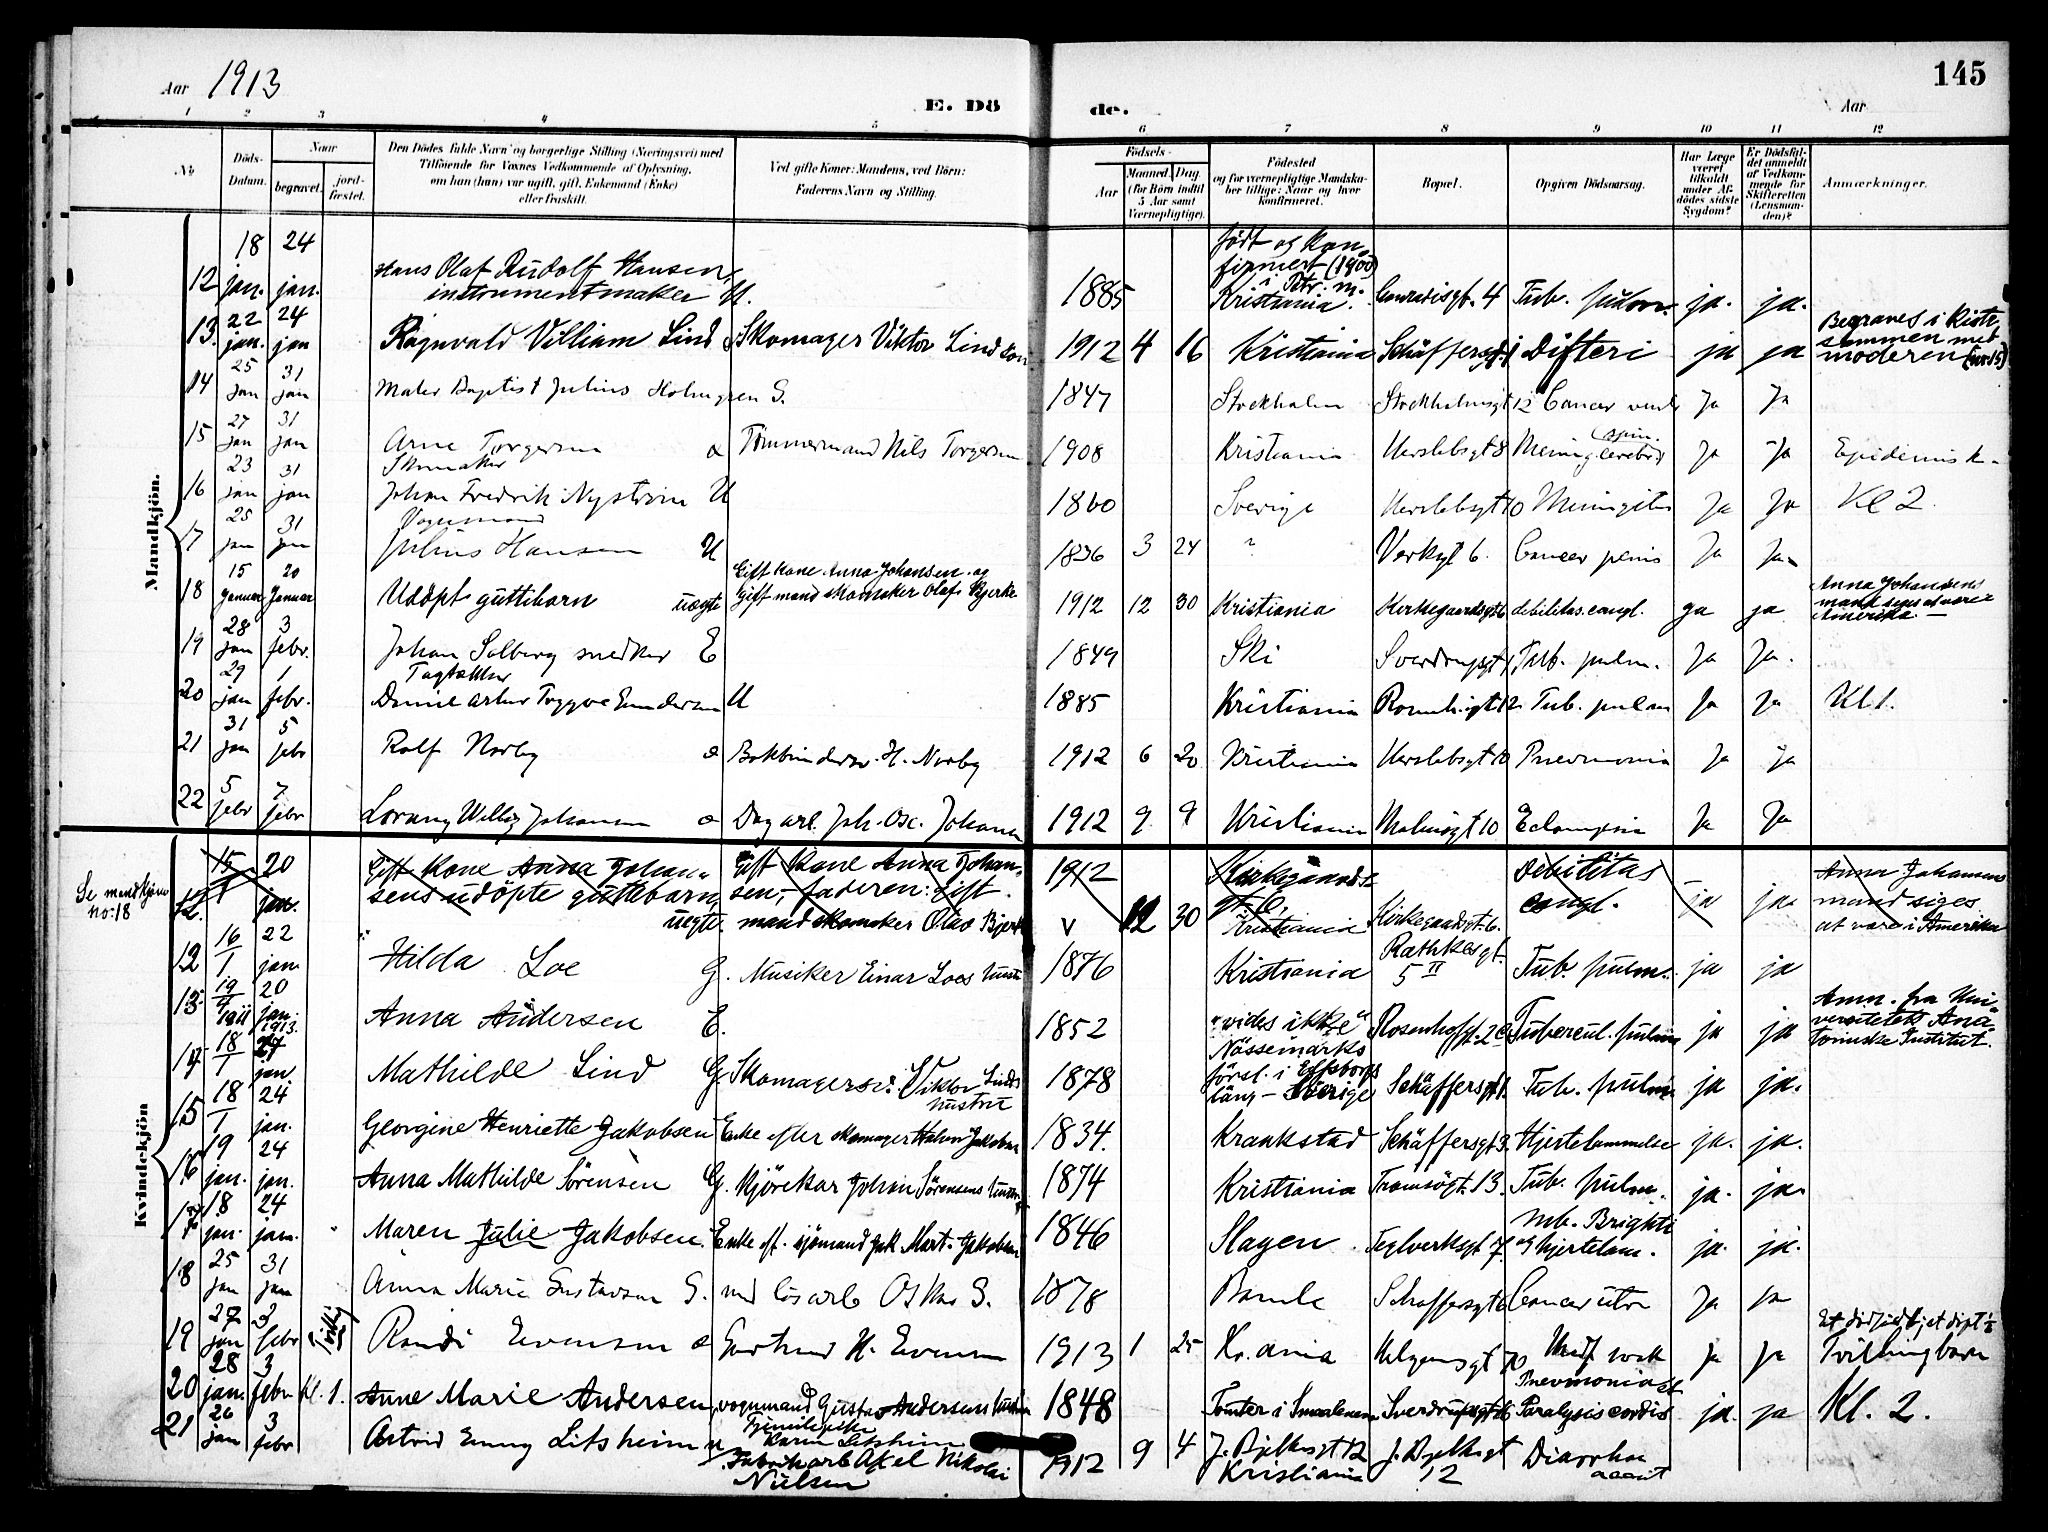 Aar 1913
145
E. Dö
de.
Aar
1 2 3 4 5 6 7 8 9 10 11 12
No
Döds-Datum.
Naar
begravet.
jord-fæstet.
Den Dödes fulde Navn og borgerlige Stilling (Næringsvei) med
Tilföiende for Voxnes Vedkommende af Oplysning,
om han (hun) var ugift, gift, Enkemand (Enke)
eller fraskilt.
Ved gifte Koner: Mandens, ved Börn:
Faderens Navn og Stilling.
Födsels-
Aar
Maaned. Dag.
(for Börn indtil
5 Aar samt
Værnepligtige).
Födested
og for værnepligtige Mandska-
ber tillige: Naar og hvor
konfirmeret.
Bopæl.
Opgiven Dödsaarsag.
Har Læge
været
tilkaldt
under Af-
dödes sidste
Sygdom?
Er Dödsfal-
det anmeldt
af Vedkom-
mende for
Skifteretten
(Lensman-
den)?
Anmærkninger.
Mandkjön.
18 24 født og kon-
Hans Olaf Rudolf Hansen, firmert (1900)
12 jan. jan. instrumentmaker U. 1885 i Petr. m. Kristiania. Conradisgt. 4 Tub. pulm. ja. ja.
13. 22 jan. 24 jan Ragnvald Villiam Lind Skomager Viktor Lind søn 1912 4 16 Kristiania Schäffersgt. 1 Difteri ja ja Begraves i kiste
sammen med
moderen
14 25 jan 31 jan Maler Baptist Julius Holmgren G. 1847 Stockholm Stockholmsgt 12 Cancer Ja Ja
15 27 jan 31 jan Arne Torgersen Tømmermand Nils Torgersen 1908 Kristiania Herslebsgt 8 Ja Ja Epidemisk
16 23 jan 31 jan Skomaker
Johan Fredrik Nystrøm U 1860 Sverige Herslebsgt 10 Meningitis Ja Ja Kl 2.
17 25 jan 31 jan Vognmand
Julius Hansen U 1836 3 24 ? Verksgt 6. Cancer penis Ja Ja
18 15 Januar 20 Januar Udöpt guttebarn uægte Gift kone Anna Johansen og
Gift mand skomaker Olaf Bjerke 1912 12 30 Kristiania Kirkegaardsgt 6 debilitas congl. ja ja Anna Johansens
mand siges at være i
Amerika
19 28 jan 3 febr. Johan Solberg snedker E 1849 Ski Sverdrupsgt Tub. pulm. Ja Ja.
20 29 jan 1 febr. Tagtækker
Daniel Artur Tryggve Gundersen U 1885 Kristiania 12 Tub. pulm Ja Ja Kl 1.
21 31 jan 5 febr Rolf Norby Bokbinder H. Norby 1912 6 20 Kristiania Herslebsgt 10 Pneumonia Ja Ja
22 5 febr 7 febr Willy Johansen Dagarb. Joh. Osc. Johansen 1912 9 9 Kristiania Malmøgt 10 Eclampsia Ja Ja
Kvindekjön
Se mandkjøn
no: 18
12. 15 1 20 jan. Gift kone Anna Johan-
sens udöpte guttebarn,
uægte. Gift kone Anna Johan-
sen, faderen: gift
mand skomaker Olav Bjerke 1912 12 30 Kirkegaards-
gt. 6,
Kristiania Kirkegaardsgt. 6. Debilitas
congl. ja ja Anna Johansens
mand siges
at være i Amerika
12 16/1 22 jan Hilda Loe G. Musiker Einar Loes hustru 1876 Kristiania Rathkesgt.
5 II Tub. pulm. ja ja
13. 19/4 1911 20 jan. 1913. Anna Andersen E. 1852 "vides ikke" Rosenhoffgt. 2 Tubercul. pulm ja ja Anm. fra Uni-
versitetets Ana-
tomiske Institut.
14 18/1 24 jan Mathilde Lind G. Skomagersv. Viktor Linds
hustru 1878 Nössemarks
försl. i Elfsborgs
län - Sverige Schäffersgt 1. Tub. pulm ja ja.
15 18/1 24 jan. Georgine Henriette Jakobsen Enke efter skomager Halvor Jakobsen 1834. Krankstad Schäffersgt 3. Hjertelammelse ja. ja.
16 19 jan. 24 jan. Anna Mathilde Sörensen G. Kjörekar Johan Sörensens hustru 1874 Kristiania Tromsögt. 13. Tub. pulm. ja. ja.
17 18 jan. 24 jan. Maren Julie Jakobsen Enke eft. sjömand Jak. Mart. Jakobsen 1846 Slagen Teglverksgt 7. mb. Brighti
og hjertelam. ja. ja.
18 25 jan 31 jan Anna Marie Gustavsen G. med løsarb Oskar G. 1878 Bamle Schaffersgt 6 Cancer uteri Ja Ja
19 27 jan 3 febr Randi Evensen H. Evensen 1913 1 25 Kr.ania Helgesensgt 70 Ja Ja
Tvillingbarn
20 28 jan. 3 febr Kl. 1. Anne Marie Andersen, vognmand Gustav Andersens hustru 1848 Tomter i Smaalenene Sverdrupsgt 16 Pneumonia et
Paralysis cordis ja. ja Kl. 2.
21 26 jan 3 febr Astrid Emmy Litsheim Tjenestepike
Karen Litsheim
Fabrikarb Axel Nikolai
Nielsen 1912 9 4 J. Bjelkesgt 12
Kristiania J. Bjelkesgt
12 Diarrhoe
acut